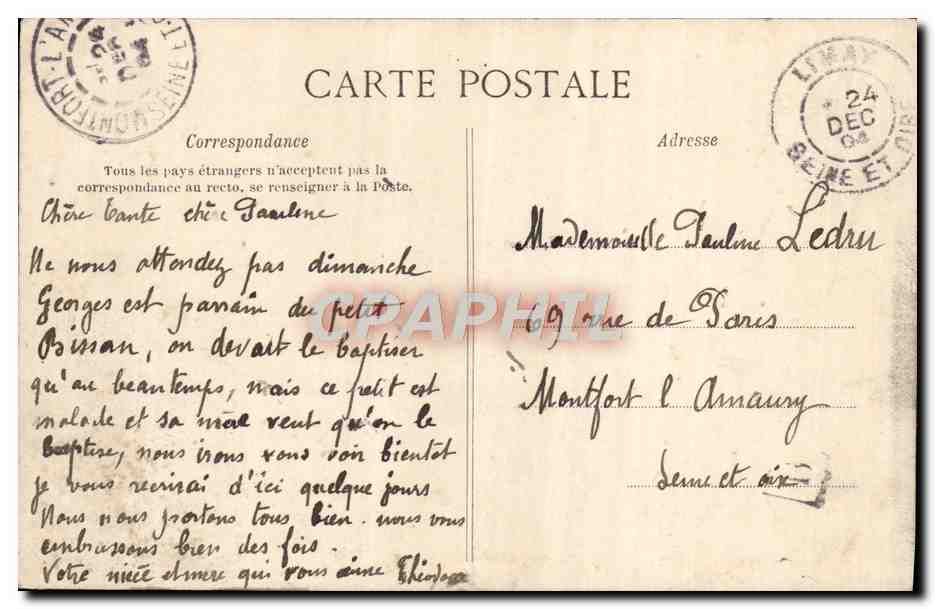 MONTFORT-L'AM SEINE-ET-O
24
DEC
04
CARTE POSTALE
LIMAY
24
DEC
04
SEINE ET OISE
Correspondance
Tous les pays étrangers n'acceptent pas la
correspondance au recto, se renseigner à la Poste.
Chère tante chère Pauline
Ne nous attendez pas dimanche
Georges est parrain du petit
Bissan, on devait le baptiser
qu'au beau temps, mais ce petit est
malade et sa mère veut qu'on le
baptise, nous irons vous voir bientot
je vous recrirai d'ici quelque jours
Nous nous portons tous bien. nous vous
embrassons bien des fois.
Votre nièce et mere qui vous aime Théodore
Adresse
Mademoiselle Pauline Ledru
69 rue de Paris
Montfort l Amaury
Seine et oise
CPAPHIL